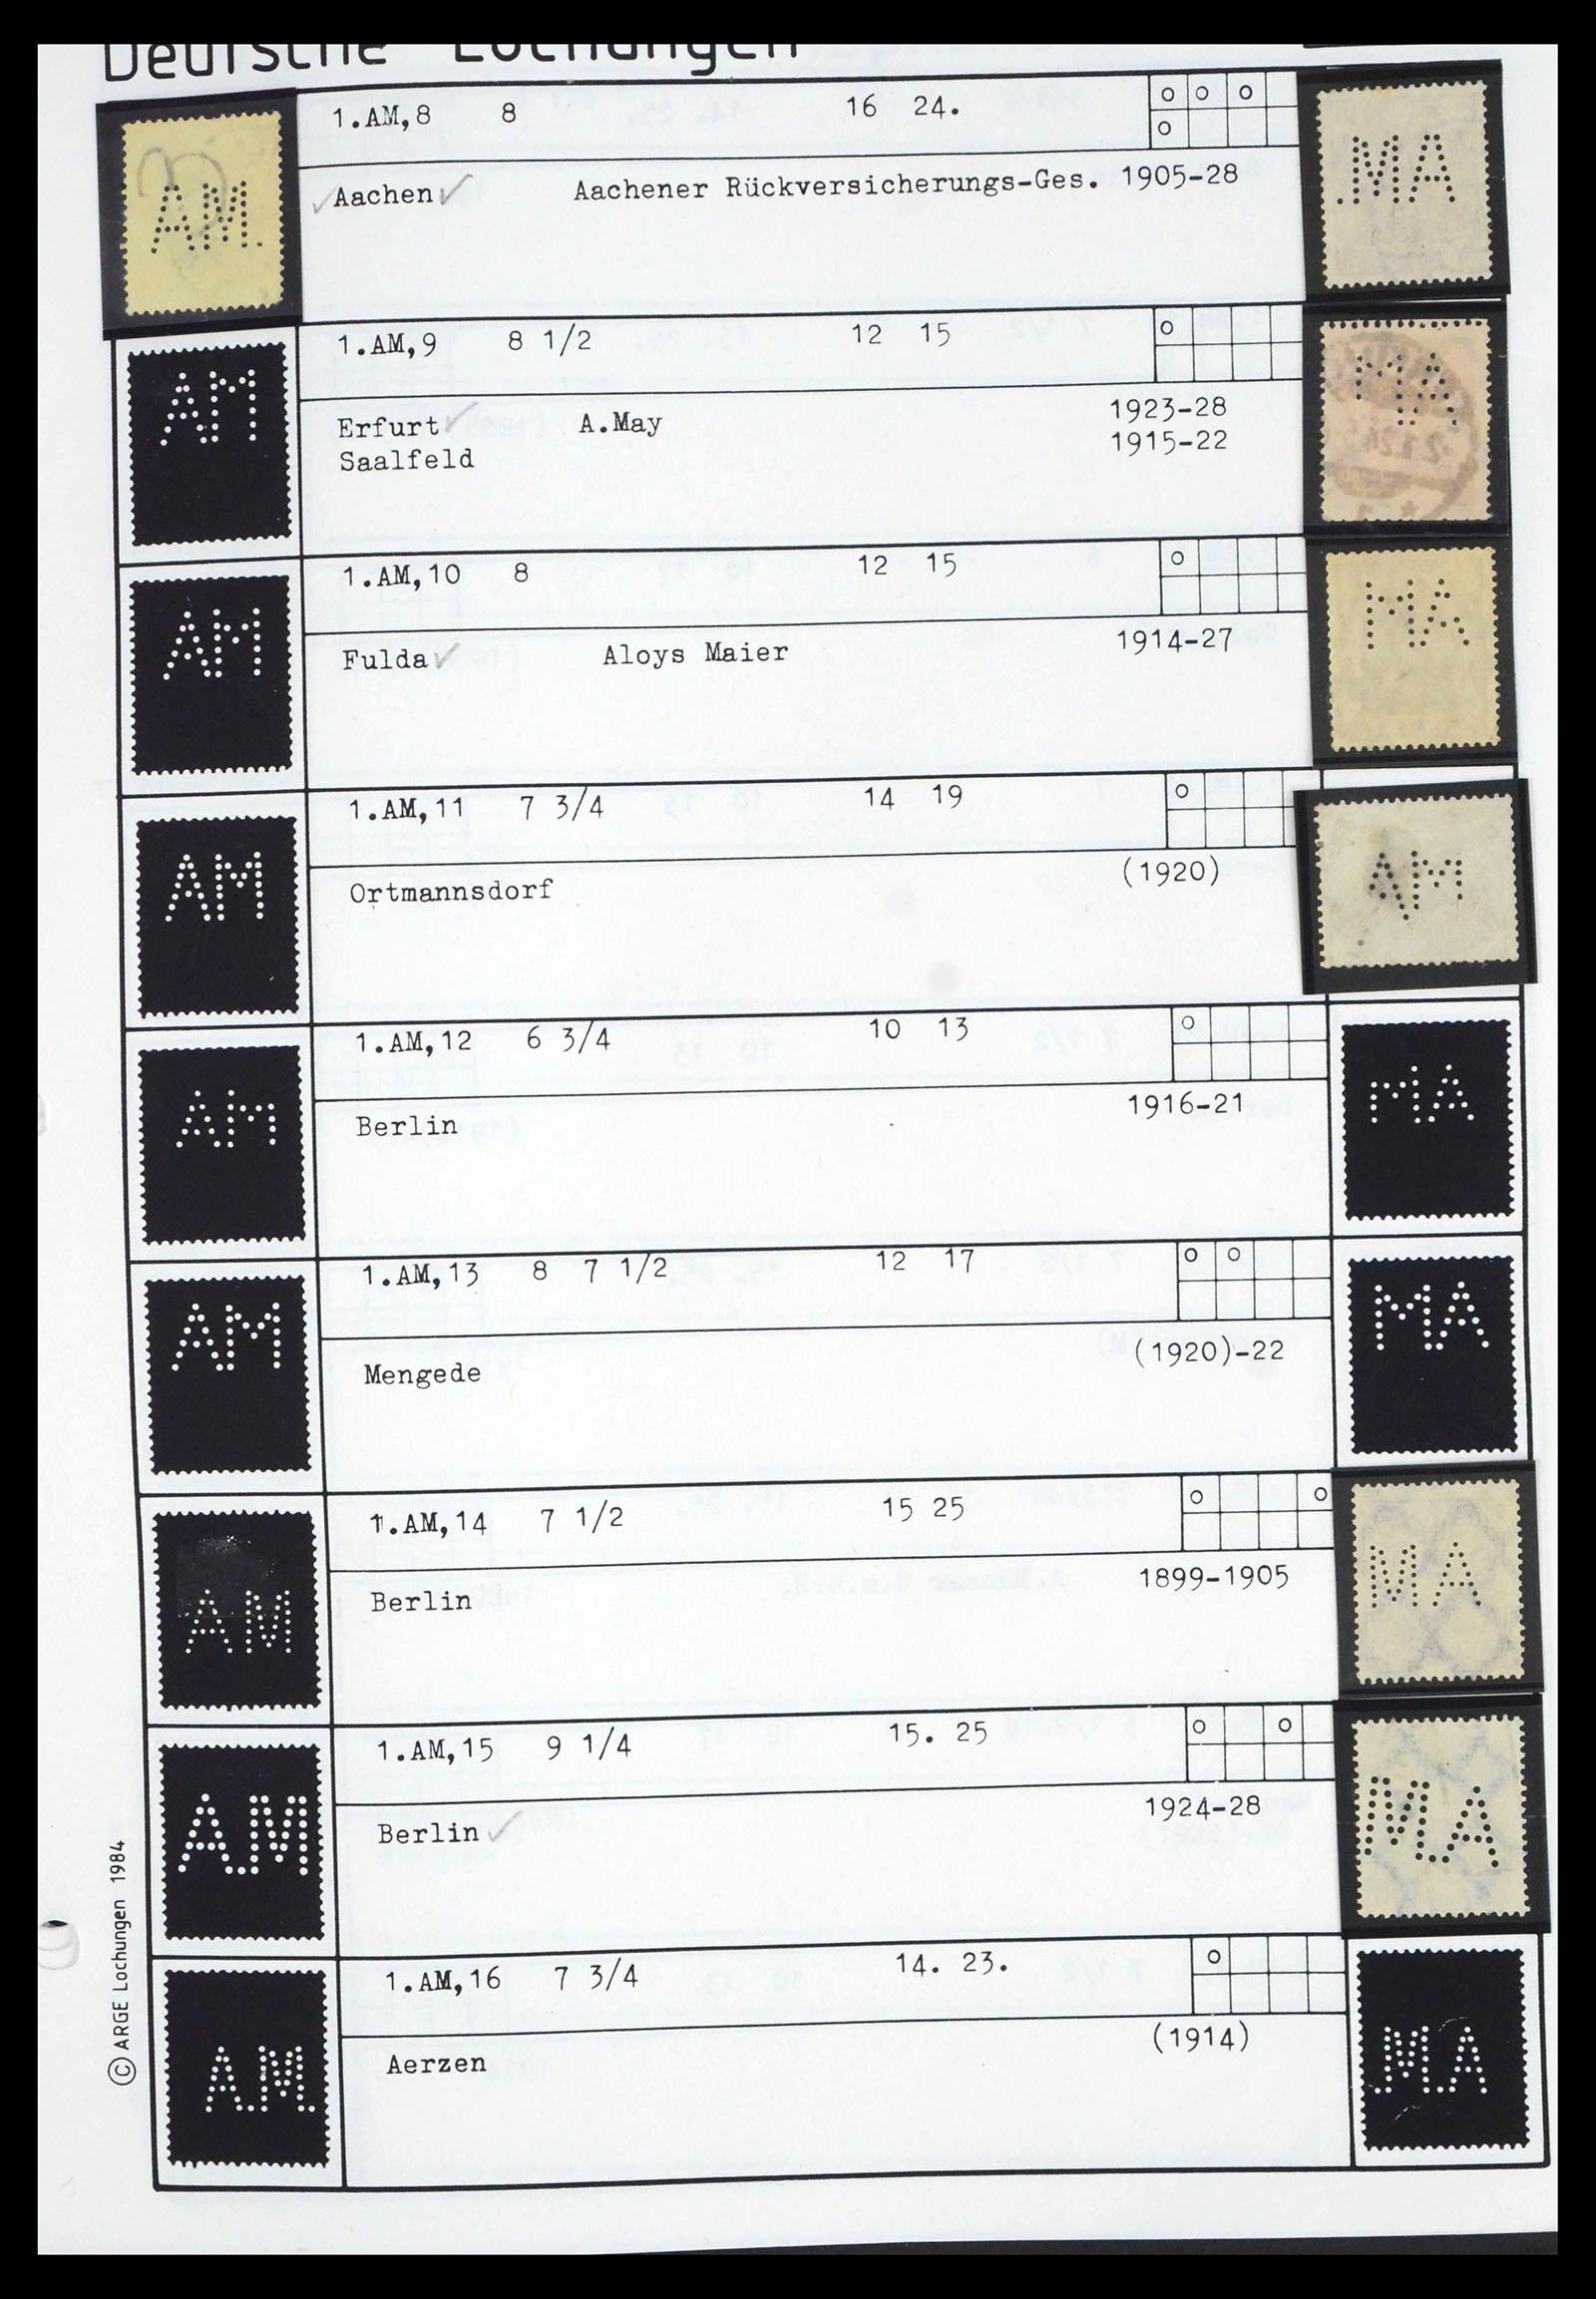 Deutsche Lochungen
1.AM,8 8 16 24.
Aachen Aachener Rückversicherungs-Ges. 1905-28
AM.
.MA
1.AM,9 8 1/2 12 15
Erfurt A.May 1923-28
Saalfeld 1915-22
AM
MA
1.AM,10 8 12 15
Fulda Aloys Maier 1914-27
AM
MA
1.AM,11 7 3/4 14 19
Ortmannsdorf (1920)
AM
AM
1.AM,12 6 3/4 10 13
Berlin 1916-21
AM
MA
1.AM,13 8 7 1/2 12 17
Mengede (1920)-22
AM
MA
1.AM,14 7 1/2 15 25
Berlin 1899-1905
AM
MA
1.AM,15 9 1/4 15. 25
Berlin 1924-28
A.M
M.A
1.AM,16 7 3/4 14. 23.
Aerzen (1914)
A.M.
.M.A
© ARGE Lochungen 1984